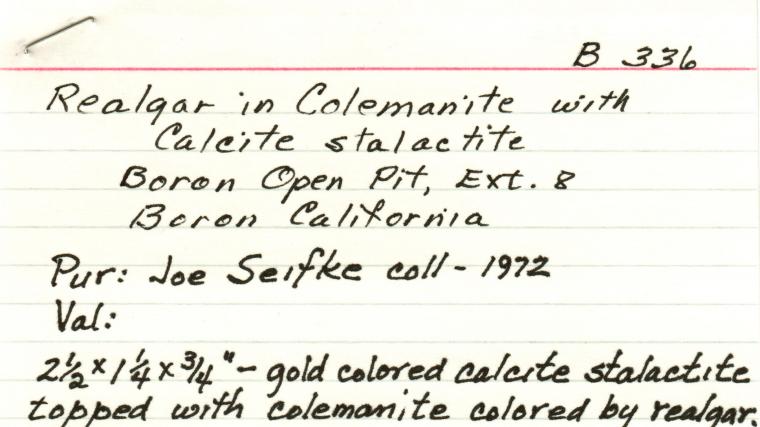 B 336
Realgar in Colemanite with
Calcite stalactite
Boron Open Pit, Ext. 8
Boron California
Pur: Joe Seifke coll - 1972
Val:
2½ x 1¼ x ¾" - gold colored calcite stalactite
topped with colemanite colored by realgar.